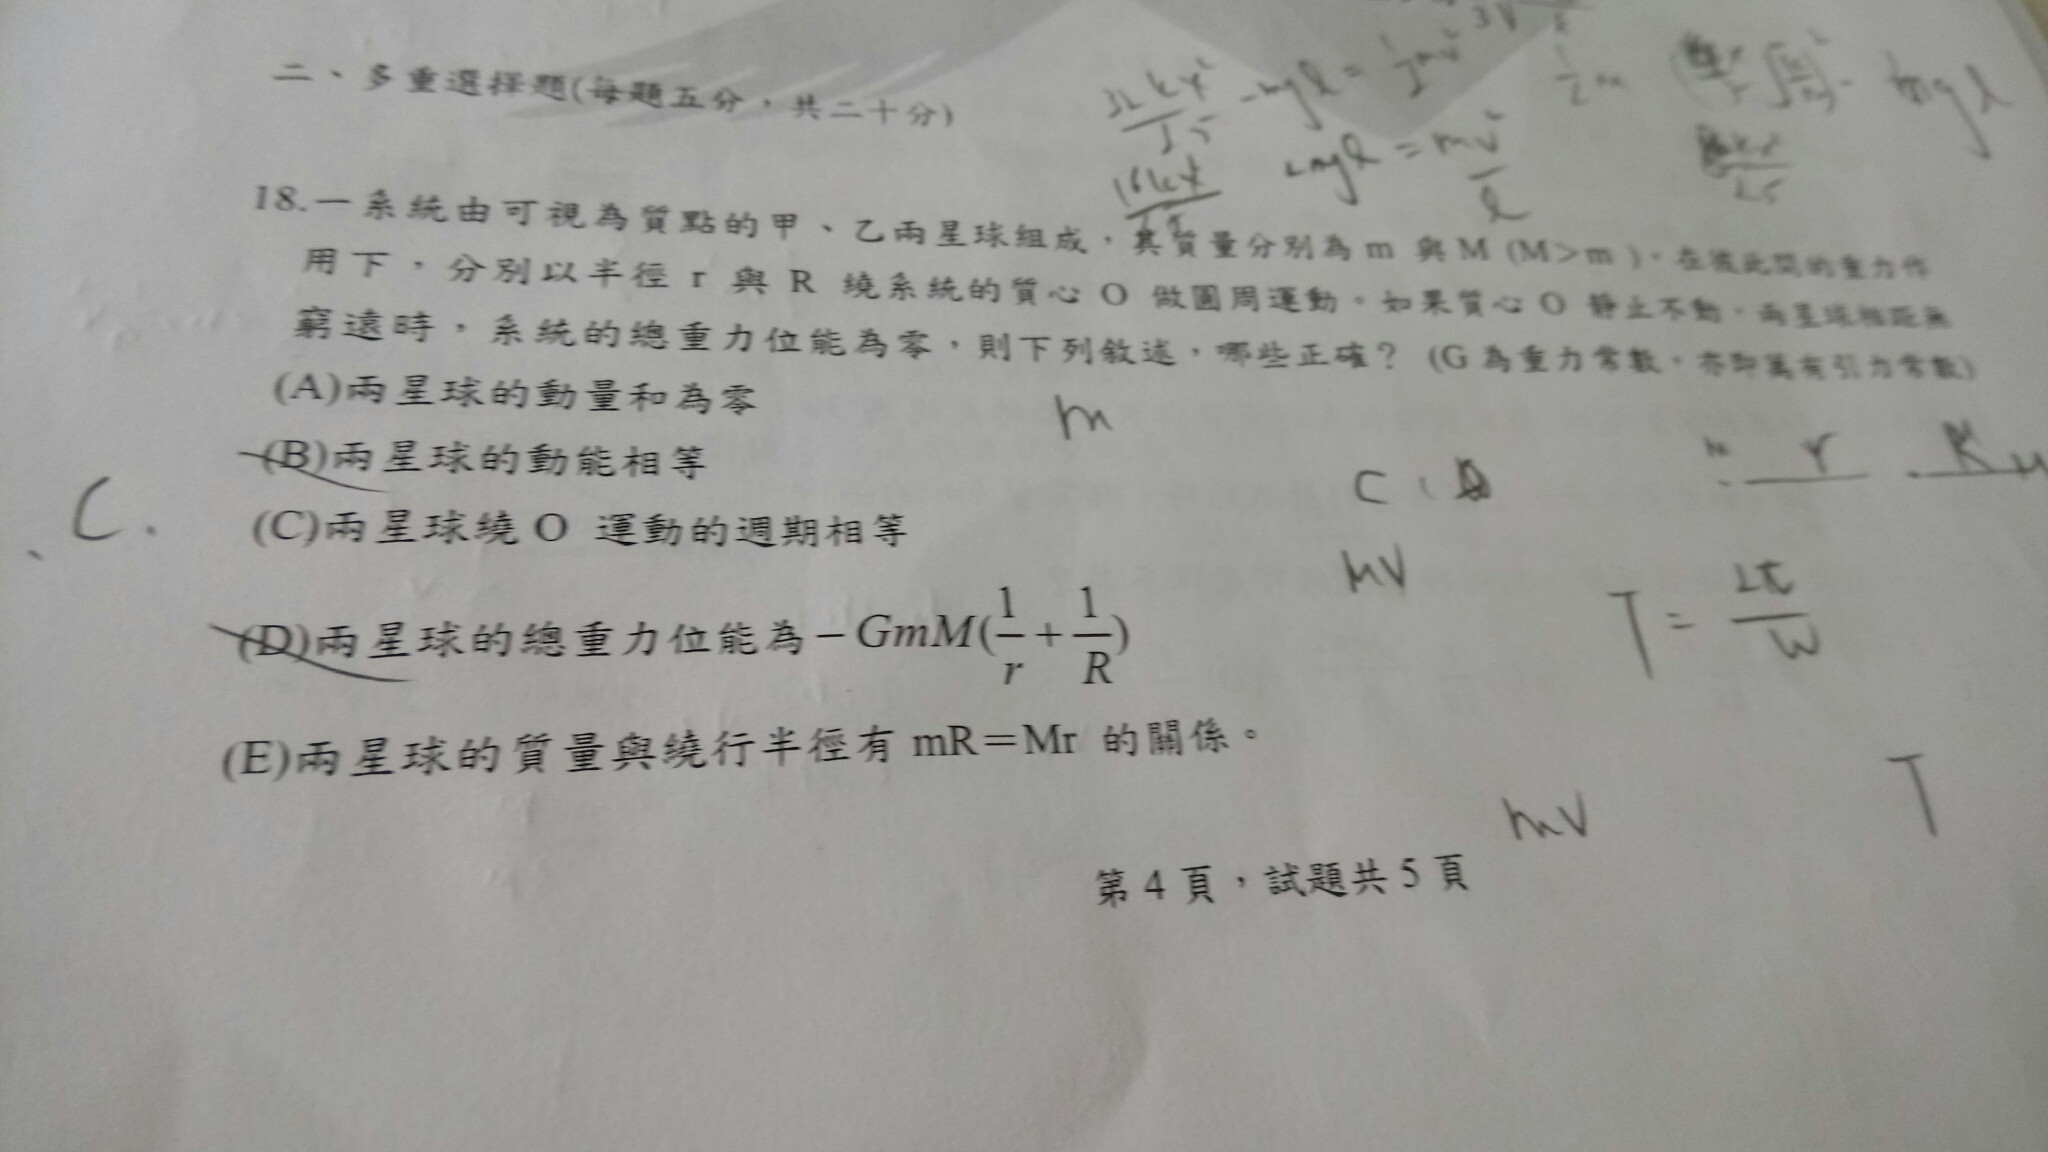 二、多重選擇題(每題五分，共二十分)
18.一系統由可視為質點的甲、乙兩星球組成，其質量分別為 m 與 M (M>m )，在彼此間的重力作
用下，分別以半徑 r 與 R 繞系統的質心 O 做圓周運動。如果質心 O 靜止不動，兩星球相距無
窮遠時，系統的總重力位能為零，則下列敘述，哪些正確？ (G 為重力常數，亦即萬有引力常數)
(A)兩星球的動量和為零
m
(B)兩星球的動能相等
r R
C.
(C)兩星球繞 O 運動的週期相等
MV
T = 2π/W
(D)兩星球的總重力位能為 −GmM(1/r + 1/R)
(E)兩星球的質量與繞行半徑有 mR＝Mr 的關係。
mV
T
第 4 頁，試題共 5 頁